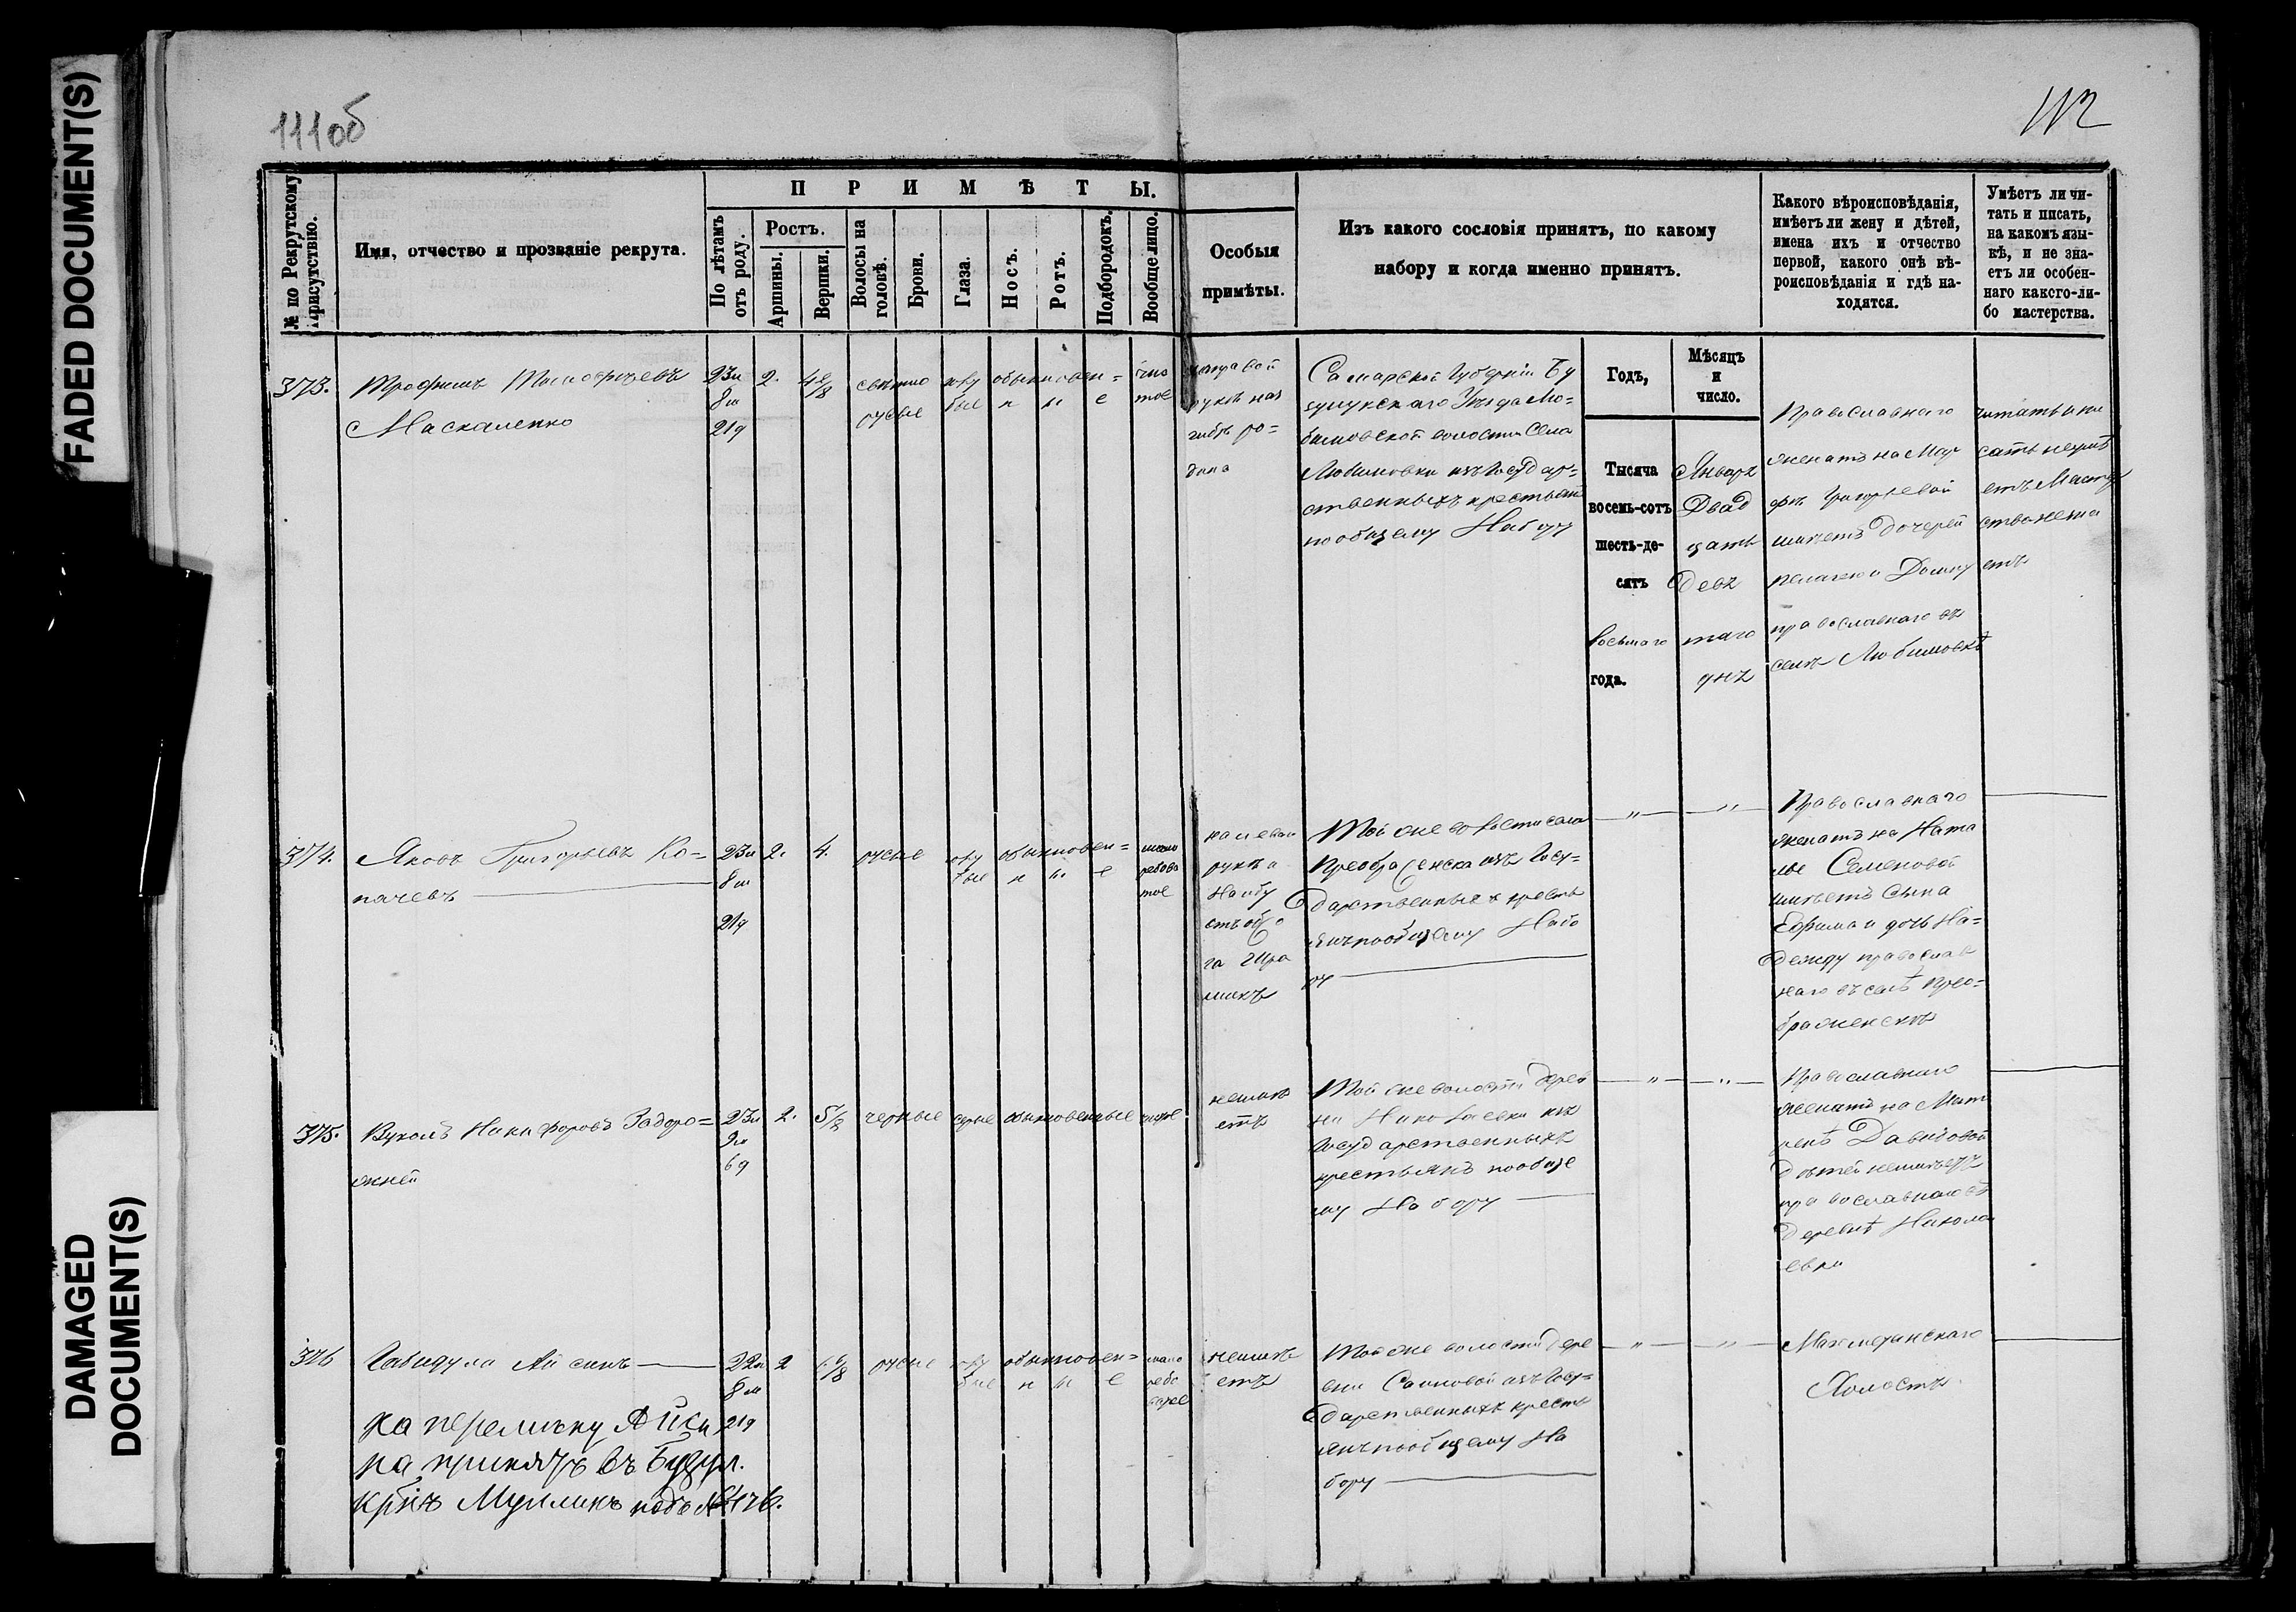 FADED DOCUMENT(S)
DAMAGED
DOCUMENT(S)
111об
112
№ по Рекрутскому
присутствію.
Имя, отчество и прозваніе рекрута.
ПРИМѢТЫ.
По лѣтамъ
отъ роду.
Ростъ.
Аршины.
Вершки.
Волосы на
головѣ.
Брови.
Глаза.
Носъ.
Ротъ.
Подбородокъ.
Вообще лицо.
Особыя
примѣты.
Изъ какого сословія принятъ, по какому
набору и когда именно принятъ.
Какого вѣроисповѣданія,
имѣетъ ли жену и дѣтей,
имена ихъ и отчество
первой, какого онѣ вѣ-
роисповѣданія и гдѣ на-
ходятся.
Умѣетъ ли чи-
тать и писать,
на какомъ язы-
кѣ, и не зна-
етъ ли особен-
наго какого-ли-
бо мастерства.
373.
Трофимъ Тимофѣевъ
Маскаленко
23л
8м
21д
2.
4 2/8
свѣтло
русые
голу
бые
обыкновен=
н ы е
чис
тое
направой
рукѣ наз
гибѣ ро=
дина
Самарской Губерніи Бу
зулукскаго Уѣзда Лю=
бимовской волости Села
Любимовки изъ Государ=
ственныхъ крестьян
пообщему Набору
Годъ,
Тысяча
восемь-сотъ
шесть-де-
сятъ
восьмаго
года.
Мѣсяцъ
и
число.
Января
Двад
цать
девя
таго
дня
Православнаго
женатъ на Мар
фѣ Григорьевой
имѣетъ дочерей
Пелагею и Домну
православнаго въ
селѣ Любимовкѣ
читать и пи
сать неумѣ
етъ Мастер
ства незна
етъ
374.
Яковъ Григорьевъ Ко=
пачевъ
23л
8м
21д
2.
4.
русые
голу
бые
обыкновен=
н ы е
рябова
тое
на левой
рукѣ а
Той же волости села
Преображенска изъ Госу=
дарственныхъ кресть
янъ пообщему Набо
ру
" "
Православнаго
женатъ на Ната
лье Семеновой
имѣетъ Сына
Ефима и дочь На=
дежду православ
наго въ селѣ Прео=
браженскѣ
375.
Вуколъ Никифоровъ Задоро=
жней
23л
9м
6д
2.
5/8
черные
серые
обыкновенные
чистое
неимѣ
етъ
Той же волости Дерев
ни Николаевки изъ
Государственныхъ
крестьянъ пообще
му Набору
" "
Православнаго
женатъ на Мат
ренѣ Давыдовой
Дѣтей неимѣетъ
православнаго въ
Деревнѣ Никола
евки
376
Габидула Айсинъ
22л
8м
21д
2
русые
голу
бые
обыкновен=
н ы е
мало
рябо
неимѣ
етъ
Той же волости Дере
вни Саиновой изъ Госу=
дарственныхъ кресть
янъ пообщему На
бору
" "
Махмединскаго
Холостъ
На перемѣну Айси
на принятъ въ Бузул.
Муслинъ подъ № 476.